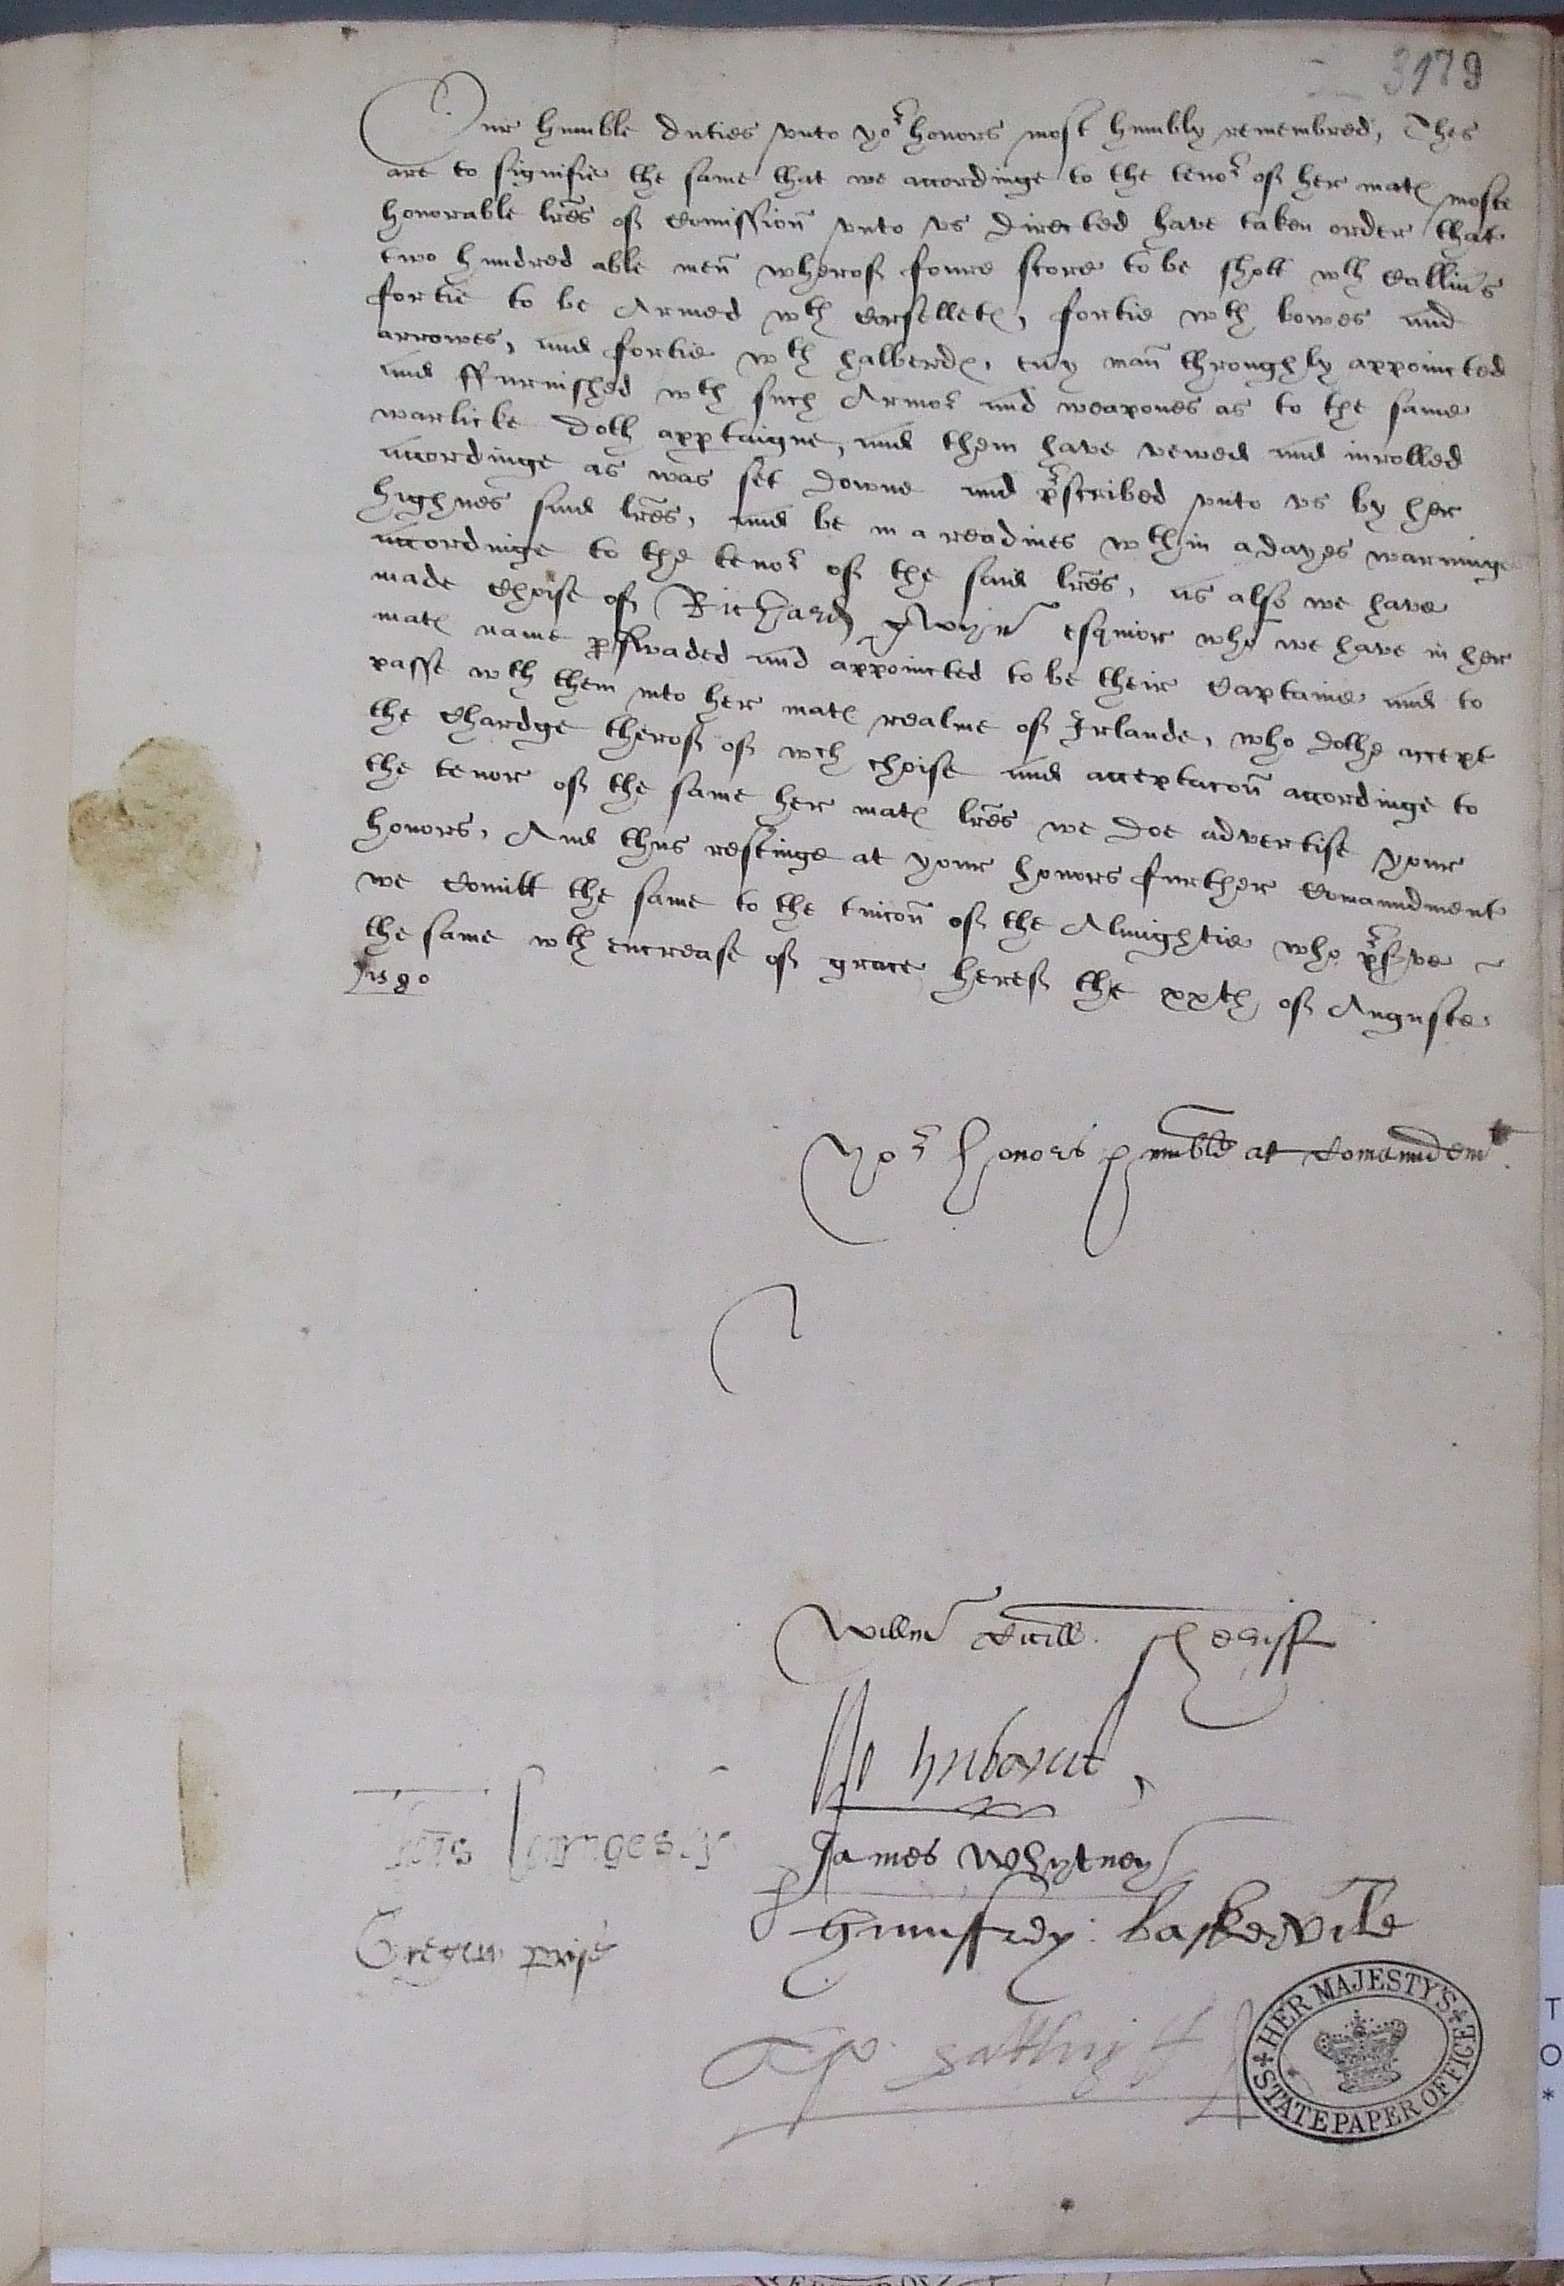 3179
Our humble duties vnto yor honors most humbly remembred, Thes
are to signifie the same that we accordinge to the tenor of her mats moste
honorable lres of Comission vnto vs directed have taken order that
two hundred able men wherof foure score to be shott wth Callivrs
fortie to be Armed wth Corsellets, fortie wth bowes and
arrowes, and fortie wth halberds, evy man throughly appointed
and ffurnished wth such Armor and weapones as to the same
warlicke doth apptaigne, and them have vewed and inrolled
accordinge as was set downe and prscribed vnto vs by her
highnes said lres, and be in a readines wthin a dayes warninge
accordinge to the tenor of the said lres, as also we have
made Choise of Richard gwyn esquior who we have in her
mats name pswaded and appointed to be their Captaine and to
passe wth them into her mats realme of Irlande, who dothe accept
the Chardge therof of wch choise and acceptacon accordinge to
the tenor of the same her mats lres we doe advertise your
honors, And thus restinge at your honors further Comaundment
we Comitt the same to the tuicon of the Almightie who prsrve
the same wth encrease of grace heref the xxth of Auguste
1580
Yor honors humble at Comaundemt
Willm Cicill Sheriff
James Whytney
Humffrey: baskervile
HER MAJESTY'S
STATE PAPER OFFICE
T
O
*